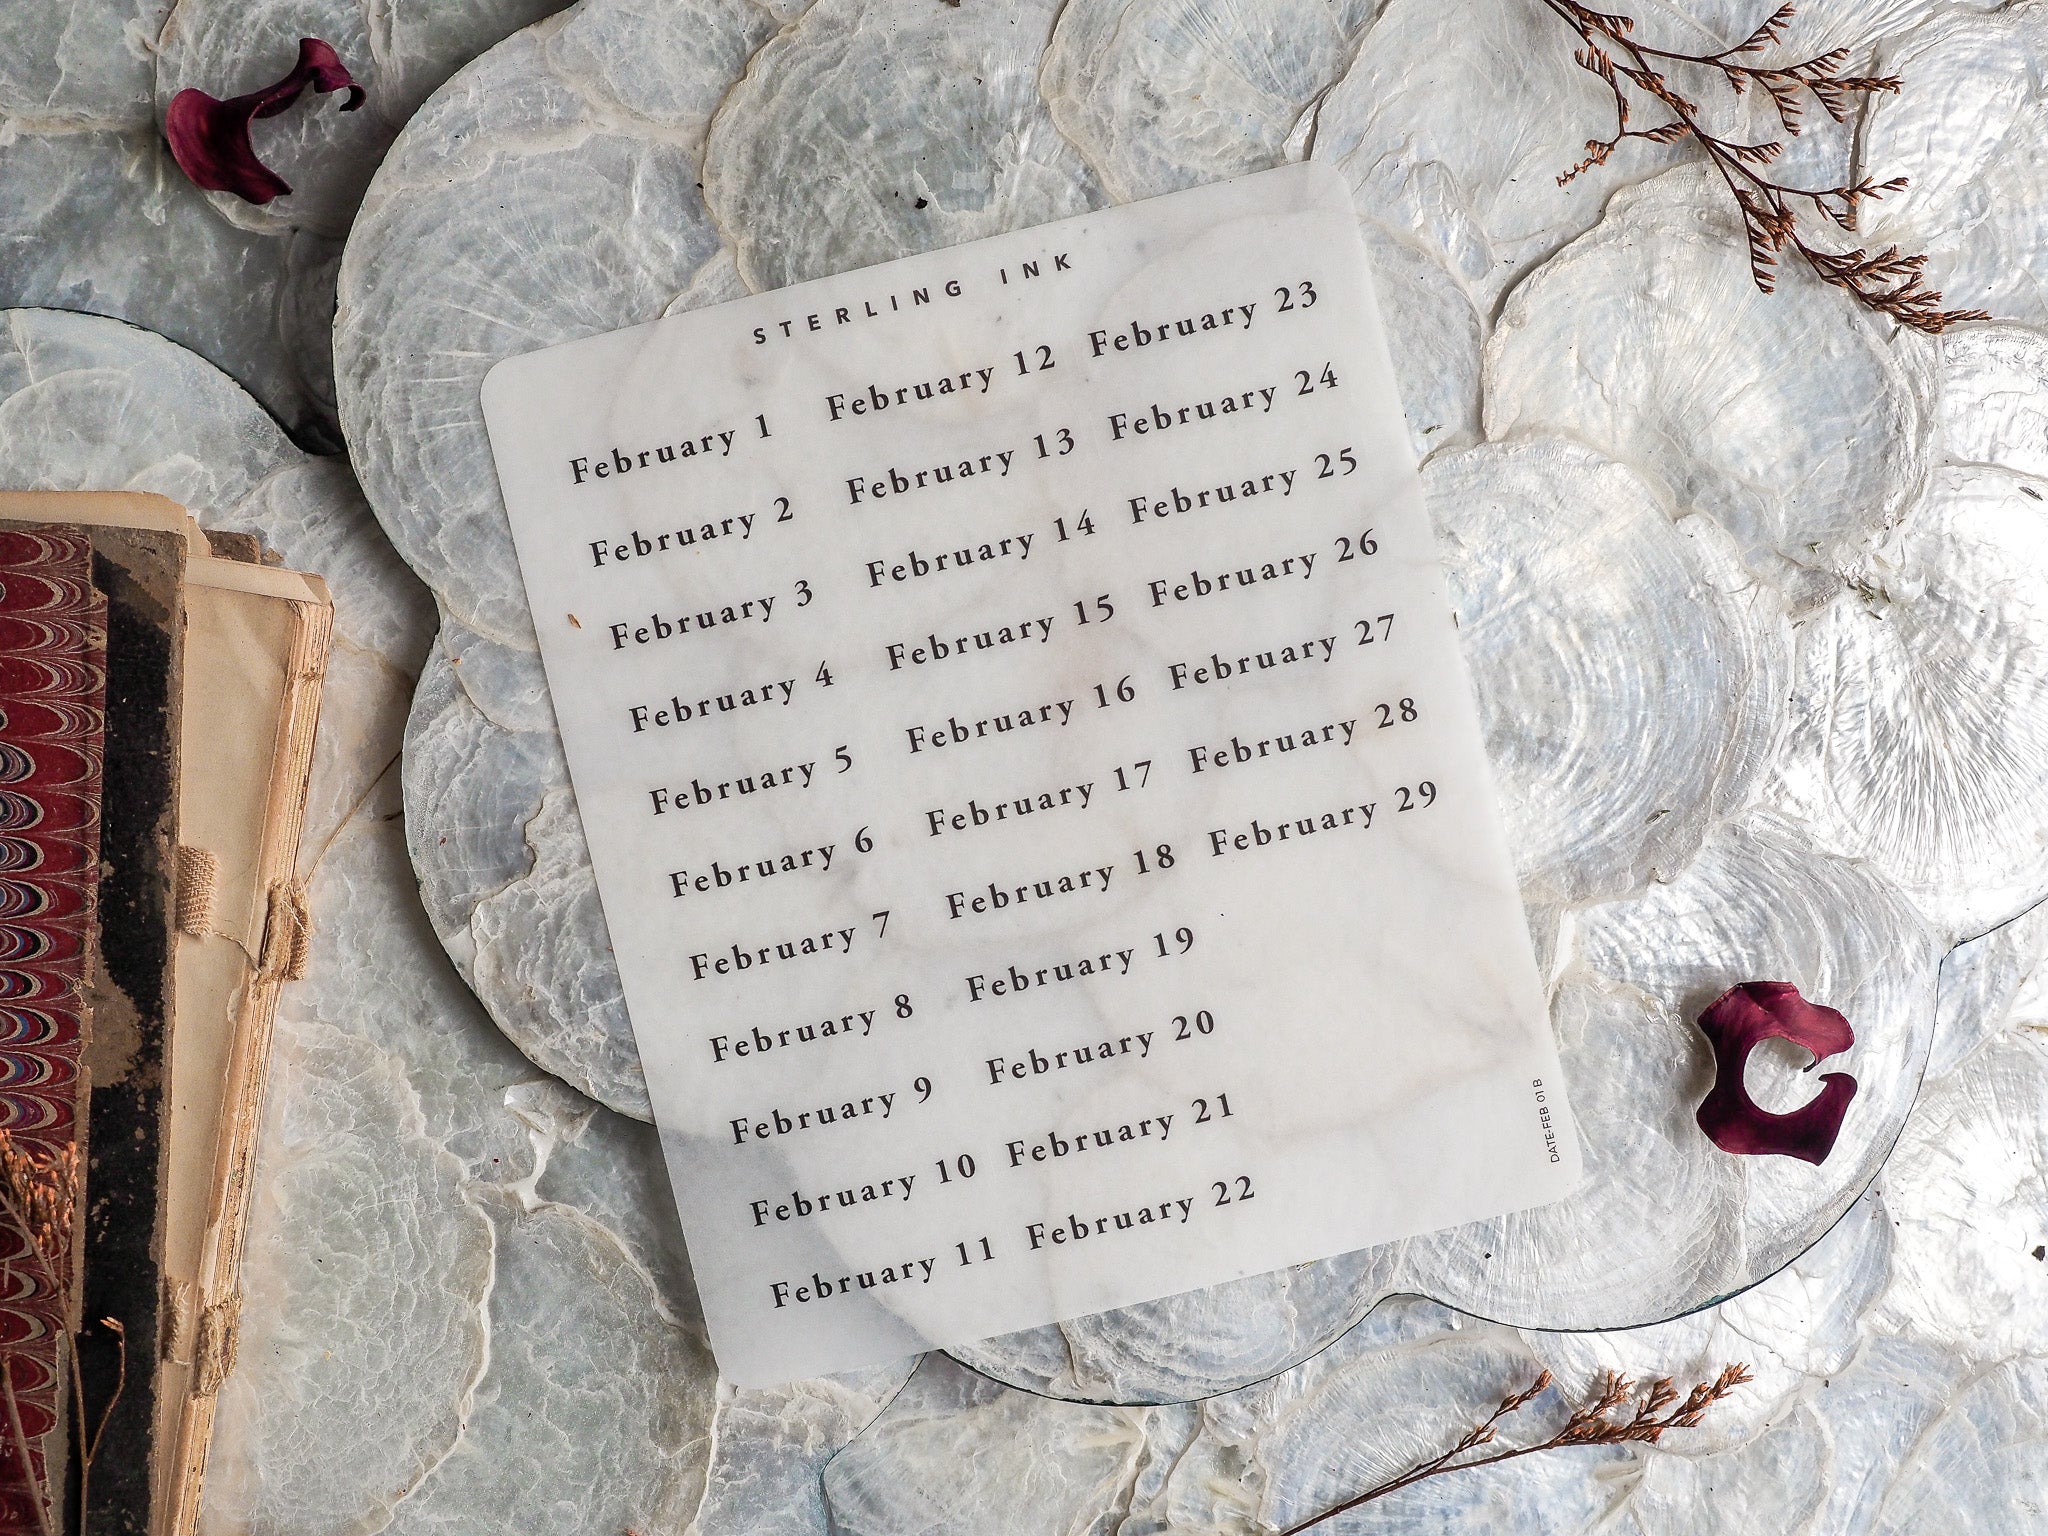 STERLING INK
February 1
February 2
February 3
February 4
February 5
February 6
February 7
February 8
February 9
February 10
February 11
February 12
February 13
February 14
February 15
February 16
February 17
February 18
February 19
February 20
February 21
February 22
February 23
February 24
February 25
February 26
February 27
February 28
February 29
DATE-FEB 01 B